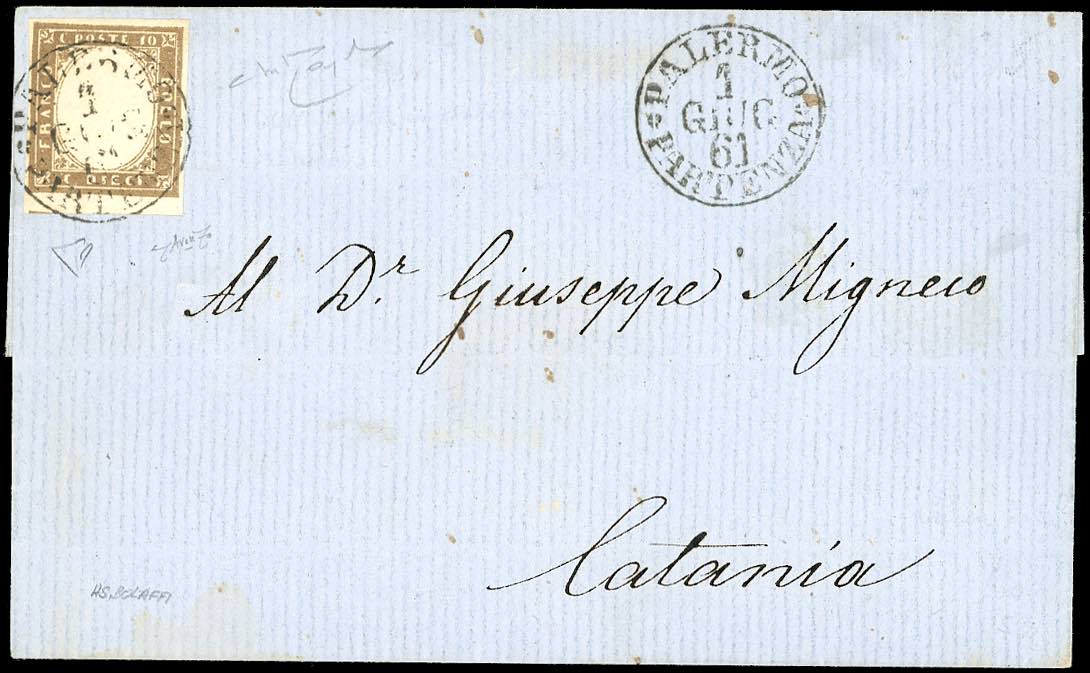 C POSTE 10
FRANCO
BOLLO
C. DIECI
PALERMO
1
GIUG
61
PARTENZA
Al Dr. Giuseppe Migneco
Catania
AS. BOLAFFI